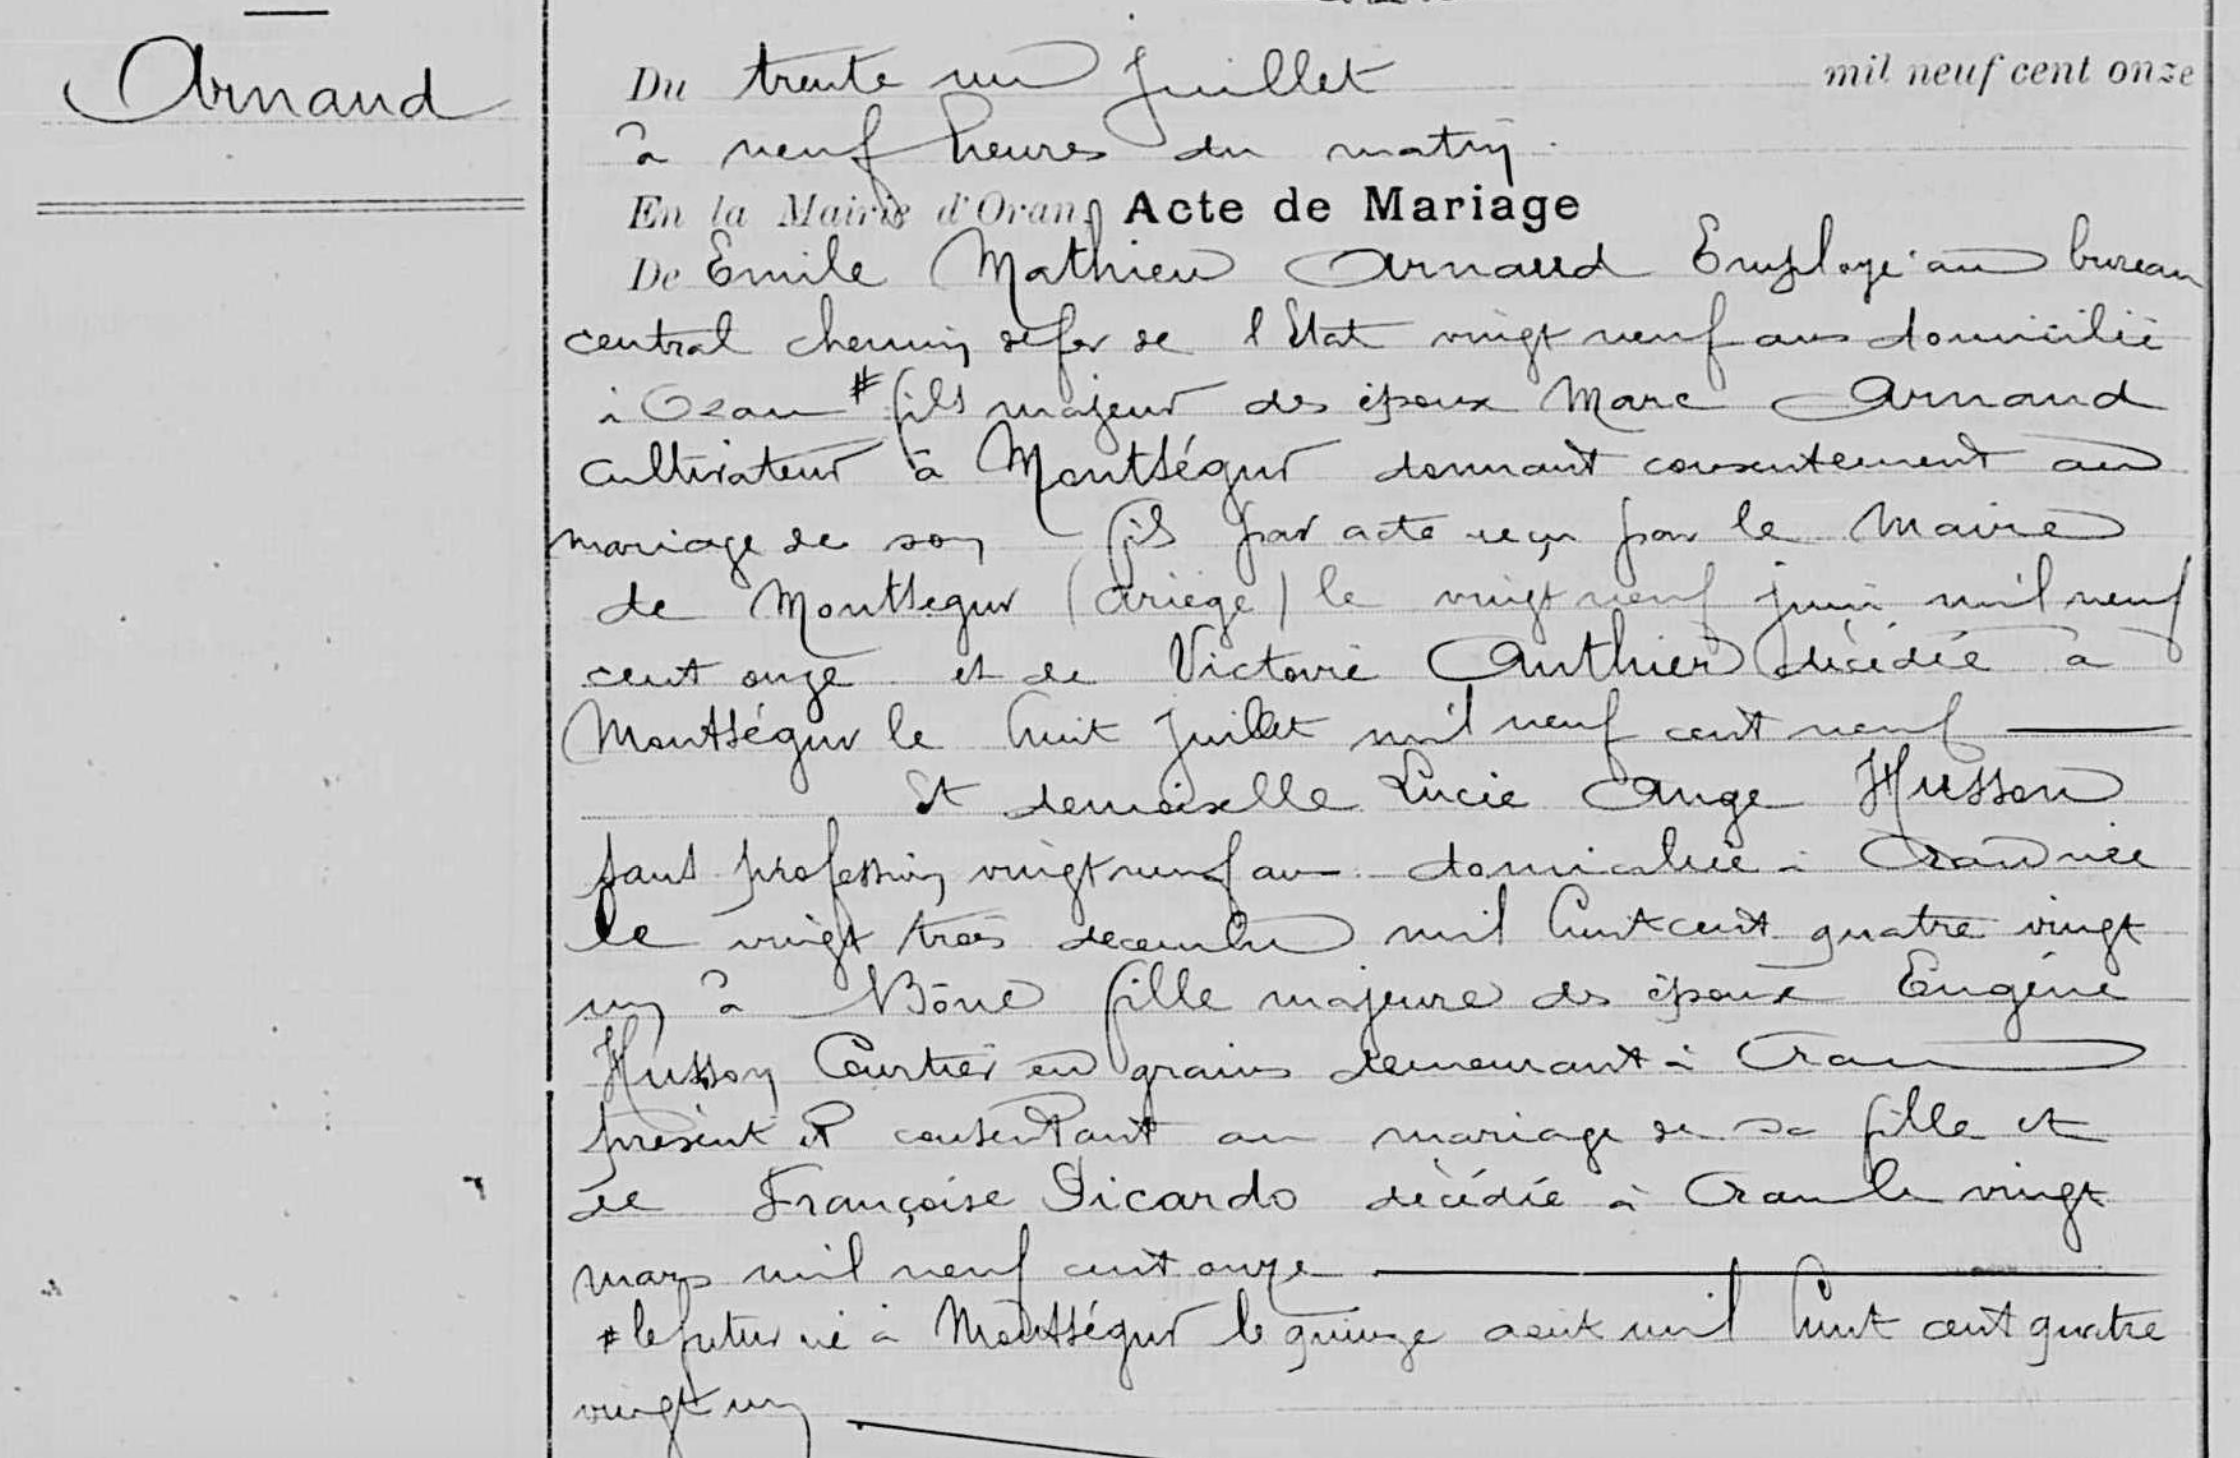 Arnaud
Du trente un Juillet mil neuf cent onze
à neuf heures du matin
En la Mairie d'Oran, Acte de Mariage
De Emile Mathieu Arnaud Employé au bureau
central chemin de fer de l'Etat vingt neuf ans domicilié
à Oran # fils majeur des époux Marc Arnaud
cultivateur à Montségur donnant consentement au
mariage de son fils par acte reçu par le Maire
de Montségur (Ariège) le vingt neuf juin mil neuf
cent onze et de Victoire Authier décédée à
Montségur le huit juillet mil neuf cent neuf
Et demoiselle Lucie Ange Husson
sans profession vingt neuf ans domiciliée à Oran née
le vingt trois decembre mil huit cent quatre vingt
un à Bône fille majeure des époux Eugène
Husson Courtier en grains demeurant à Oran
présent et consentant au mariage de sa fille et
de Françoise Picardo décédée à Oran le vingt
mars mil neuf cent onze
# le futur né à Montségur le quinze août mil huit cent quatre
vingt un